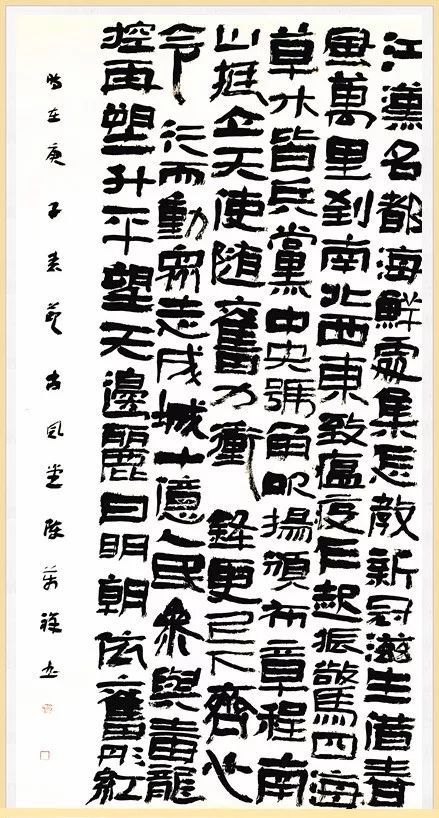 江漢名都海鮮處集怎教新冠滋生借春
風萬里到南北西東致瘟疫乍起振驚四海
草木皆兵黨中央號角即揚頒布章程南
山挺立天使隨奮力衝鋒更上下齊心
令行而動眾志成城十億人民與毒龍
控再塑升平望天邊麗日明朝依舊彤紅
時在庚子古風堂陳萬祥書